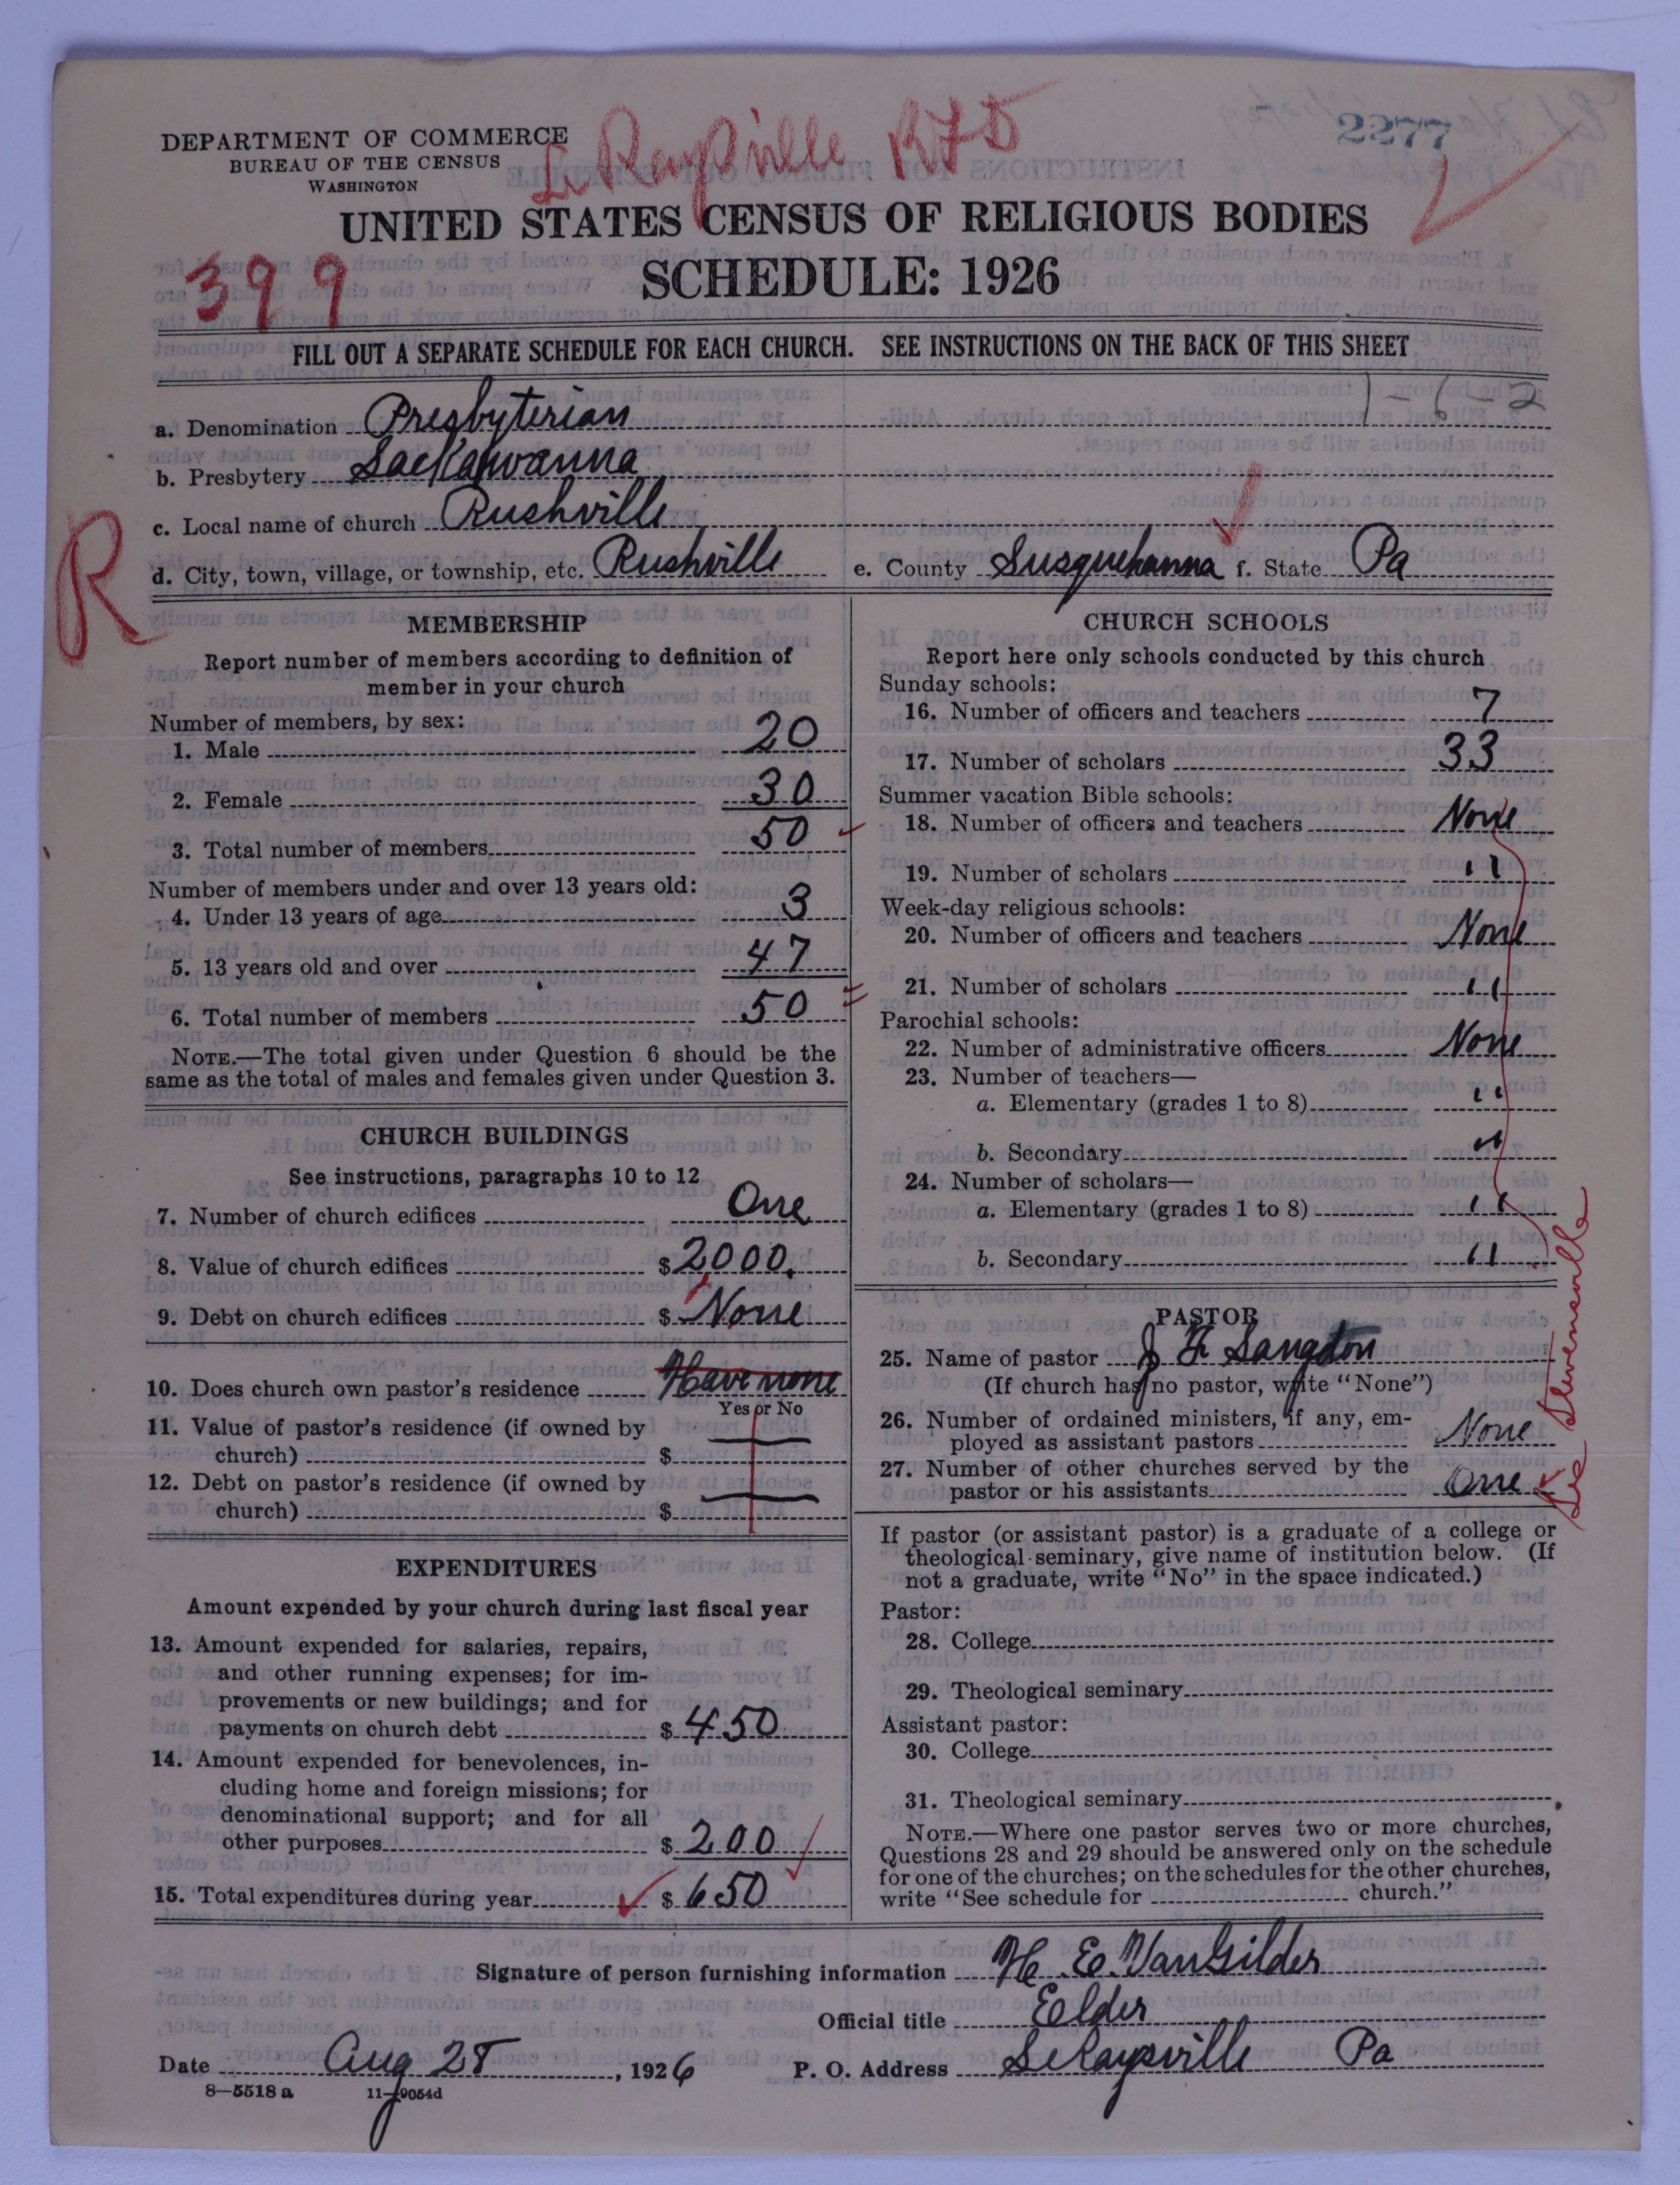 DEPARTMENT OF COMMERCE
BUREAU OF THE CENSUS
WASHINGTON
Le Raysville RFD
2277
UNITED STATES CENSUS OF RELIGIOUS BODIES
SCHEDULE: 1926
399
FILL OUT A SEPARATE SCHEDULE FOR EACH CHURCH. SEE INSTRUCTIONS ON THE BACK OF THIS SHEET
1-6-2
a. Denomination Presbyterian
b. Presbytery Lackawanna
c. Local name of church Rushville
R
d. City, town, village, or township, etc. Rushville e. County Susquehanna f. State Pa
MEMBERSHIP
Report number of members according to definition of
member in your church
Number of members, by sex:
1. Male 20
2. Female 30
3. Total number of members 50
Number of members under and over 13 years old:
4. Under 13 years of age 3
5. 13 years old and over 47
6. Total number of members 50
NOTE.—The total given under Question 6 should be the
same as the total of males and females given under Question 3.
CHURCH BUILDINGS
See instructions, paragraphs 10 to 12
7. Number of church edifices One
8. Value of church edifices $2000.
9. Debt on church edifices $ None
10. Does church own pastor's residence Have none
Yes or No
11. Value of pastor's residence (if owned by
church) $
12. Debt on pastor's residence (if owned by
church) $
EXPENDITURES
Amount expended by your church during last fiscal year
13. Amount expended for salaries, repairs,
and other running expenses; for im-
provements or new buildings; and for
payments on church debt $ 450
14. Amount expended for benevolences, in-
cluding home and foreign missions; for
denominational support; and for all
other purposes $ 200
15. Total expenditures during year $ 650
CHURCH SCHOOLS
Report here only schools conducted by this church
Sunday schools:
16. Number of officers and teachers 7
17. Number of scholars 33
Summer vacation Bible schools:
18. Number of officers and teachers None
19. Number of scholars "
Week-day religious schools:
20. Number of officers and teachers None
21. Number of scholars "
Parochial schools:
22. Number of administrative officers None
23. Number of teachers—
a. Elementary (grades 1 to 8) "
b. Secondary "
24. Number of scholars—
a. Elementary (grades 1 to 8) "
b. Secondary "
PASTOR
25. Name of pastor J F Langton
(If church has no pastor, write "None")
26. Number of ordained ministers, if any, em-
ployed as assistant pastors None
27. Number of other churches served by the
pastor or his assistants One
See Stevensville
If pastor (or assistant pastor) is a graduate of a college or
theological seminary, give name of institution below. (If
not a graduate, write "No" in the space indicated.)
Pastor:
28. College
29. Theological seminary
Assistant pastor:
30. College
31. Theological seminary
NOTE.—Where one pastor serves two or more churches,
Questions 28 and 29 should be answered only on the schedule
for one of the churches; on the schedules for the other churches,
write "See schedule for church."
Signature of person furnishing information H. E. VanGilder
Official title Elder
Date Aug 28, 1926 P. O. Address LeRaysville Pa
8—5518 a 11—9054d